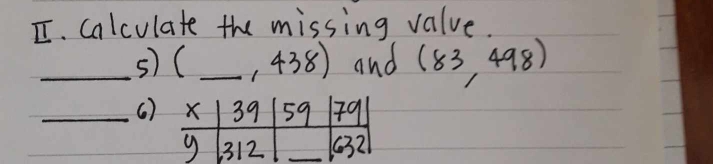 II. Calculate the missing value.
____ 5) ( __, 438) and (83, 498)
____ 6) x | 39 | 59 | 79 |
y | 312 | __ | 632 |